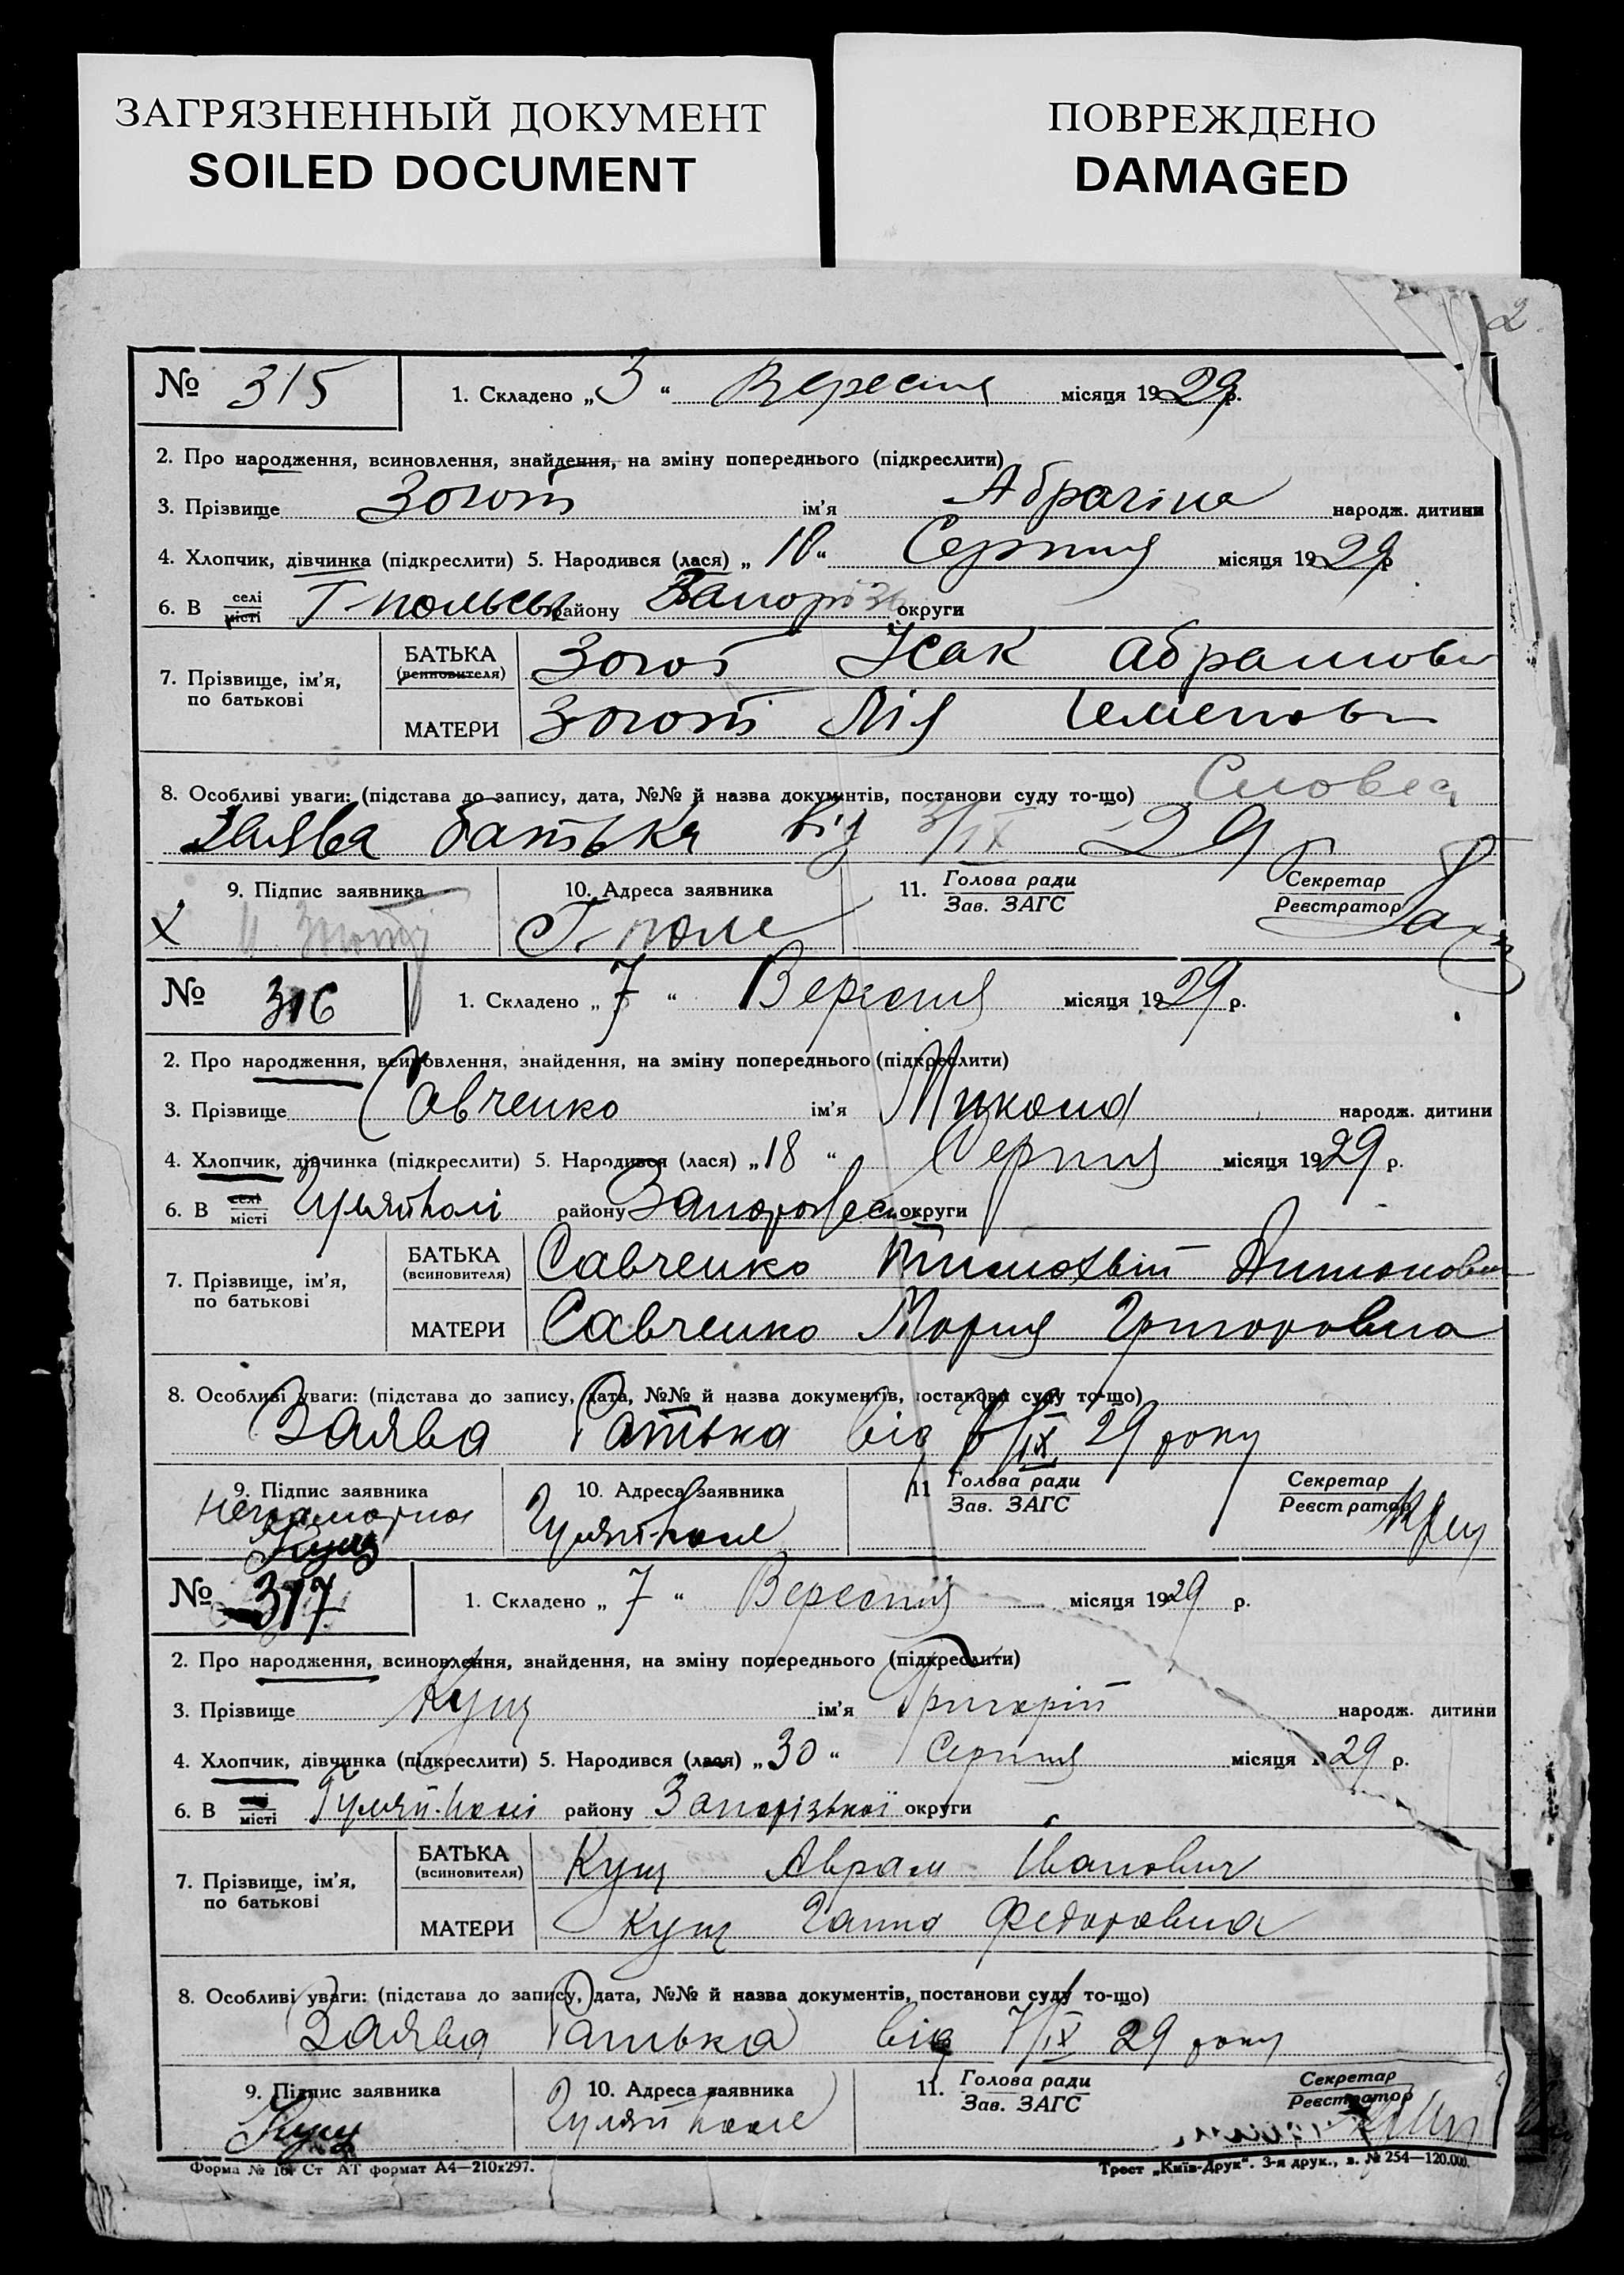 ЗАГРЯЗНЕННЫЙ ДОКУМЕНТ
SOILED DOCUMENT
ПОВРЕЖДЕНО
DAMAGED
2
№ 315 1. Складено „3“ Вересня місяця 1929р.
2. Про народження, всиновлення, знайдення, на зміну попереднього (підкреслити)
3. Прізвище Золот ім'я народж. дитини
4. Хлопчик, дівчинка (підкреслити) 5. Народився (лася) „10“ Серпня місяця 1929р
6. В селі місті району Запорізь округи
7. Прізвище, ім'я, по батькові БАТЬКА (всиновителя) Золот Ісак Абрамови
МАТЕРИ Золот Лія Семенов
8. Особливі уваги: (підстава до запису, дата, №№ й назва документів, постанови суду то-що)
Заява батька від 3/IX 29
9. Підпис заявника 10. Адреса заявника 11. Голова ради Зав. ЗАГС Секретар Реєстратор
Г. поле
№ 316 1. Складено „7“ Вересня місяця 1929 р.
2. Про народження, всиновлення, знайдення, на зміну попереднього (підкреслити)
3. Прізвище Савченко ім'я Микола народж. дитини
4. Хлопчик, дівчинка (підкреслити) 5. Народився (лася) „18“ Серпня місяця 1929 р.
6. В селі місті Гуляйполі району округи
7. Прізвище, ім'я, по батькові БАТЬКА (всиновителя) Савченко Тимохвій Антонович
МАТЕРИ Савченко Мария Григоровна
8. Особливі уваги: (підстава до запису, дата, №№ й назва документів, постанови суду то-що)
Заява Батька від 7/IX 29 року
9. Підпис заявника 10. Адреса заявника 11 Голова ради Зав. ЗАГС Секретар Реєстратор
неграмотна Гуляй-поле
Кущ
№ 317 1. Складено „7“ Вересня місяця 1929 р.
2. Про народження, всиновлення, знайдення, на зміну попереднього (підкреслити)
3. Прізвище Кущ ім'я Григорій народж. дитини
4. Хлопчик, дівчинка (підкреслити) 5. Народився (лася) „30“ Серпня місяця 1929 р.
6. В місті Гуляй-Полі району Запорізької округи
7. Прізвище, ім'я, по батькові БАТЬКА (всиновителя) Кущ Аврам Іванович
МАТЕРИ Кущ Ганна Федоровна
8. Особливі уваги: (підстава до запису, дата, №№ й назва документів, постанови суду то-що)
Заява Батька від 7/IX 29 року
9. Підпис заявника 10. Адреса заявника 11. Голова ради Зав. ЗАГС Секретар Реєстратор
Кущ Гуляй Поле
Форма № 16 Ст АТ формат А4—210х297. Трест „Київ-Друк“. 3-я друк., з. № 254—120.000.